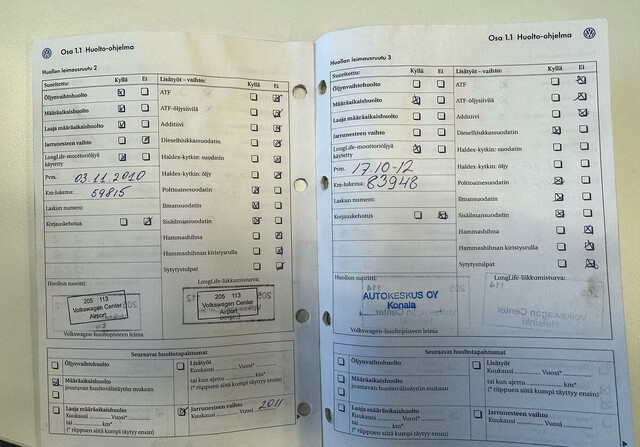 Osa 1.1 Huolto-ohjelma
Huollon leimausruutu 2
Suoritettu: Kyllä Ei
Öljynvaihtohuolto
Määräaikaishuolto
Laaja määräaikaishuolto
Jarrunesteen vaihto
LongLife-moottoriöljyä
käytetty
Pvm. 03.11.2010
Km-lukema: 59815
Laskun numero:
Korjauskehotus
Lisätyöt – vaihto: Kyllä Ei
ATF
ATF-öljysiivilä
Additiivi
Dieselhiukkassuodatin
Haldex-kytkin: suodatin
Haldex-kytkin: öljy
Polttoainesuodatin
Ilmansuodatin
Sisäilmansuodatin
Hammashihna
Hammashihnan kiristysrulla
Sytytystulpat
Huollon suoritti:
205 113
Volkswagen Center
Airport
Volkswagen-huoltopisteen leima
LongLife-liikkumisturva:
205 113
Volkswagen Center
Airport
Seuraavat huoltotapahtumat
Öljynvaihtohuolto
Määräaikaishuolto
joustavan huoltovälinäytön mukaan
Laaja määräaikaishuolto
Kuukausi Vuosi*
tai km*
(* riippuen siitä kumpi täyttyy ensin)
Lisätyöt
Kuukausi Vuosi*
tai kun ajettu km*
(* riippuen siitä kumpi täyttyy ensin)
Jarrunesteen vaihto
Kuukausi Vuosi 2011
Osa 1.1 Huolto-ohjelma
Huollon leimausruutu 3
Suoritettu: Kyllä Ei
Öljynvaihtohuolto
Määräaikaishuolto
Laaja määräaikaishuolto
Jarrunesteen vaihto
LongLife-moottoriöljyä
käytetty
Pvm. 17.10-12
Km-lukema: 83948
Laskun numero:
Korjauskehotus
Lisätyöt – vaihto: Kyllä Ei
ATF
ATF-öljysiivilä
Additiivi
Dieselhiukkassuodatin
Haldex-kytkin: suodatin
Haldex-kytkin: öljy
Polttoainesuodatin
Ilmansuodatin
Sisäilmansuodatin
Hammashihna
Hammashihnan kiristysrulla
Sytytystulpat
Huollon suoritti:
AUTOKESKUS OY
Konala
Volkswagen-huoltopisteen leima
LongLife-liikkumisturva:
Seuraavat huoltotapahtumat
Öljynvaihtohuolto
Määräaikaishuolto
joustavan huoltovälinäytön mukaan
Laaja määräaikaishuolto
Kuukausi Vuosi*
tai km*
(* riippuen siitä kumpi täyttyy ensin)
Lisätyöt
Kuukausi Vuosi*
tai kun ajettu km*
(* riippuen siitä kumpi täyttyy ensin)
Jarrunesteen vaihto
Kuukausi Vuosi